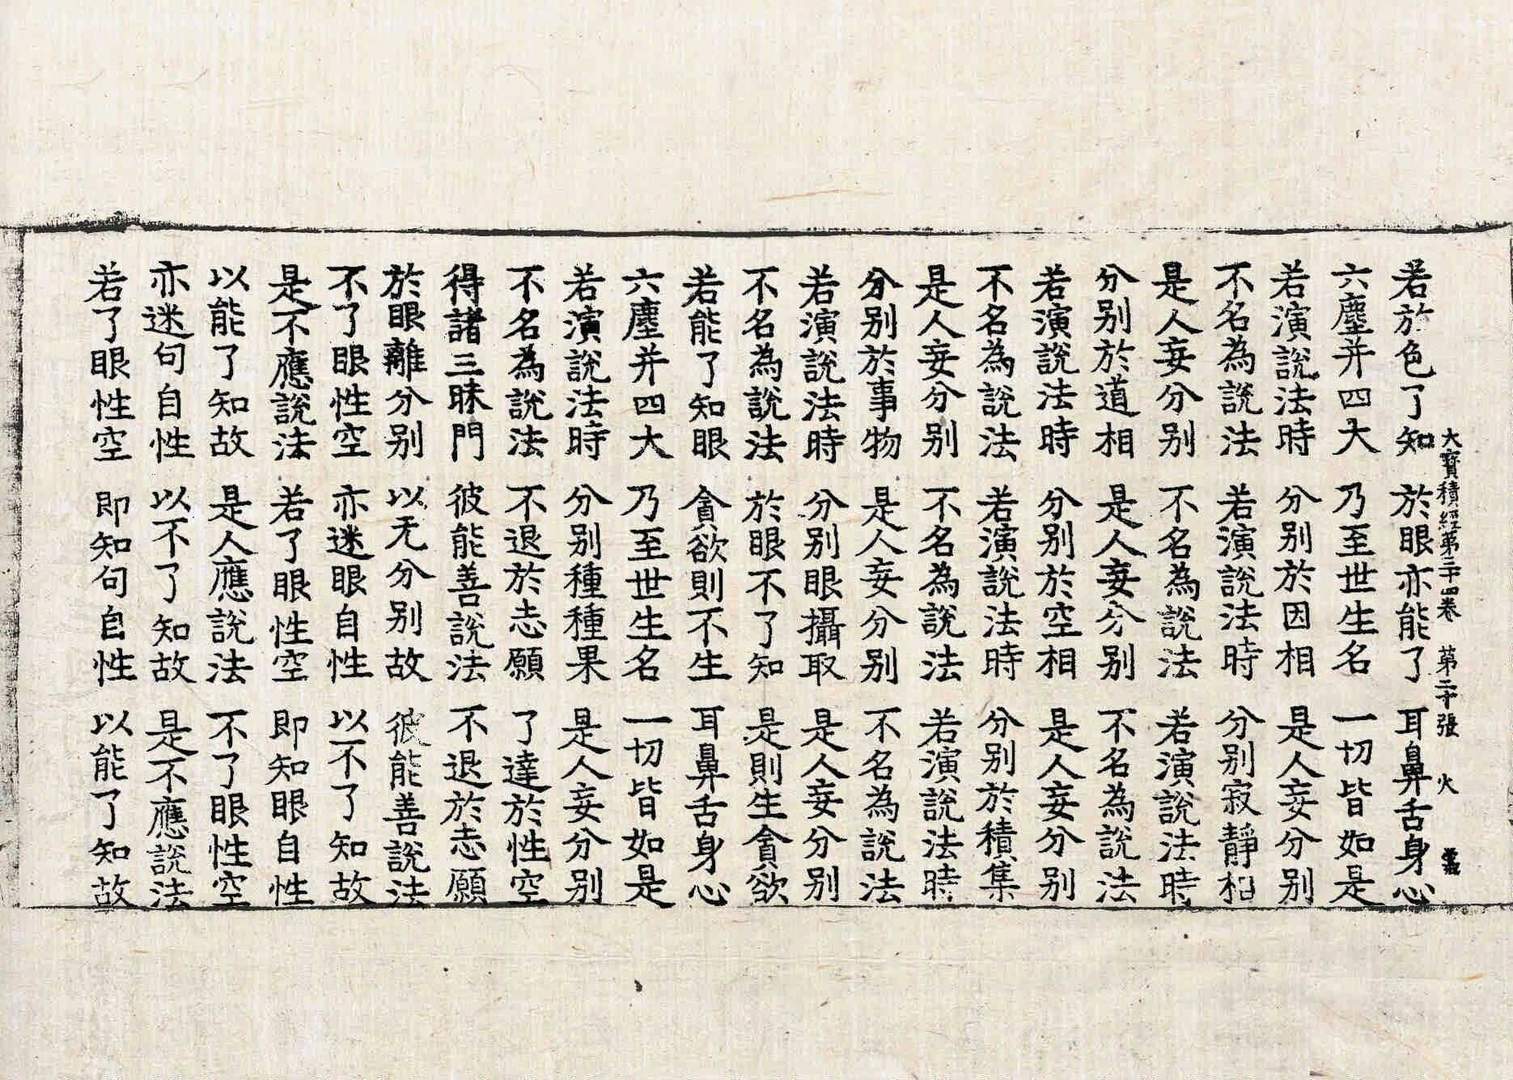 大寶積經第三十四卷 第二十張 火
若於色了知 於眼亦能了 耳鼻舌身心
六塵并四大 乃至世生名 一切皆如是
若演說法時 分別於因相 是人妄分別
不名為說法 若演說法時 分別寂靜相
是人妄分別 不名為說法 若演說法時
分別於道相 是人妄分別 不名為說法
若演說法時 分別於空相 是人妄分別
不名為說法 若演說法時 分別於積集
是人妄分別 不名為說法 若演說法時
分別於事物 是人妄分別 不名為說法
若演說法時 分別眼攝取 是人妄分別
不名為說法 於眼不了知 是則生貪欲
若能了知眼 貪欲則不生 耳鼻舌身心
六塵并四大 乃至世生名 一切皆如是
若演說法時 分別種種果 是人妄分別
不名為說法 不退於志願 了達於性空
得諸三昧門 彼能善說法 不退於志願
於眼離分別 以无分別故 彼能善說法
不了眼性空 亦迷眼自性 以不了知故
是不應說法 若了眼性空 即知眼自性
以能了知故 是人應說法 不了眼性空
亦迷句自性 以不了知故 是不應說法
若了眼性空 即知句自性 以能了知故